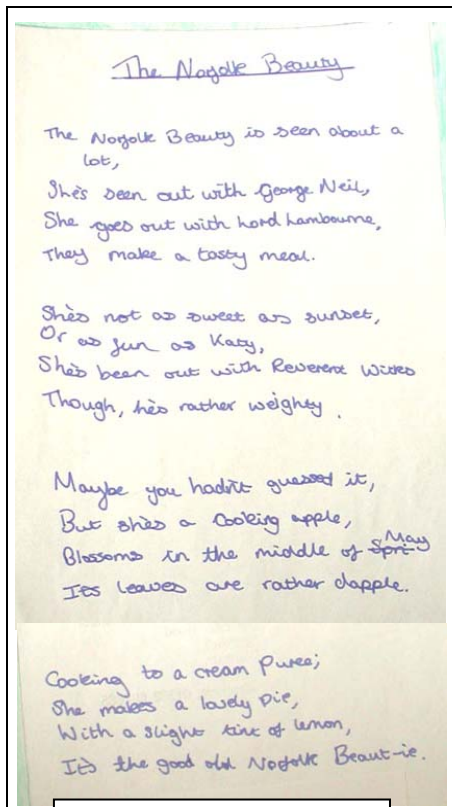 The Norfolk Beauty
The Norfolk Beauty is seen about a
lot,
She's seen out with George Neil,
She goes out with Lord Lambourne,
They make a tasty meal.
She's not as sweet as sunset,
Or as fun as Katy,
She's been out with Reverent Wilks
Though, he's rather weighty.
Maybe you hadn't guessed it,
But she's a Cooking apple,
Blossoms in the middle of May
Its leaves are rather dapple.
Cooking to a cream Puree;
She makes a lovely Pie,
With a slight tint of lemon,
It's the good old Norfolk Beaut-ie.